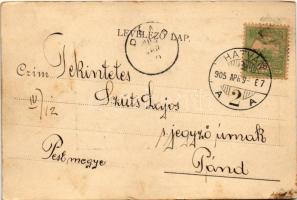 LEVELEZŐ LAP.
HATVAN
905 ÁPR 9 - E7
A 2 A
Czím: Tekintetes
Szűts Lajos
s.jegyző úrnak
IV/12
Pest megye
Pánd